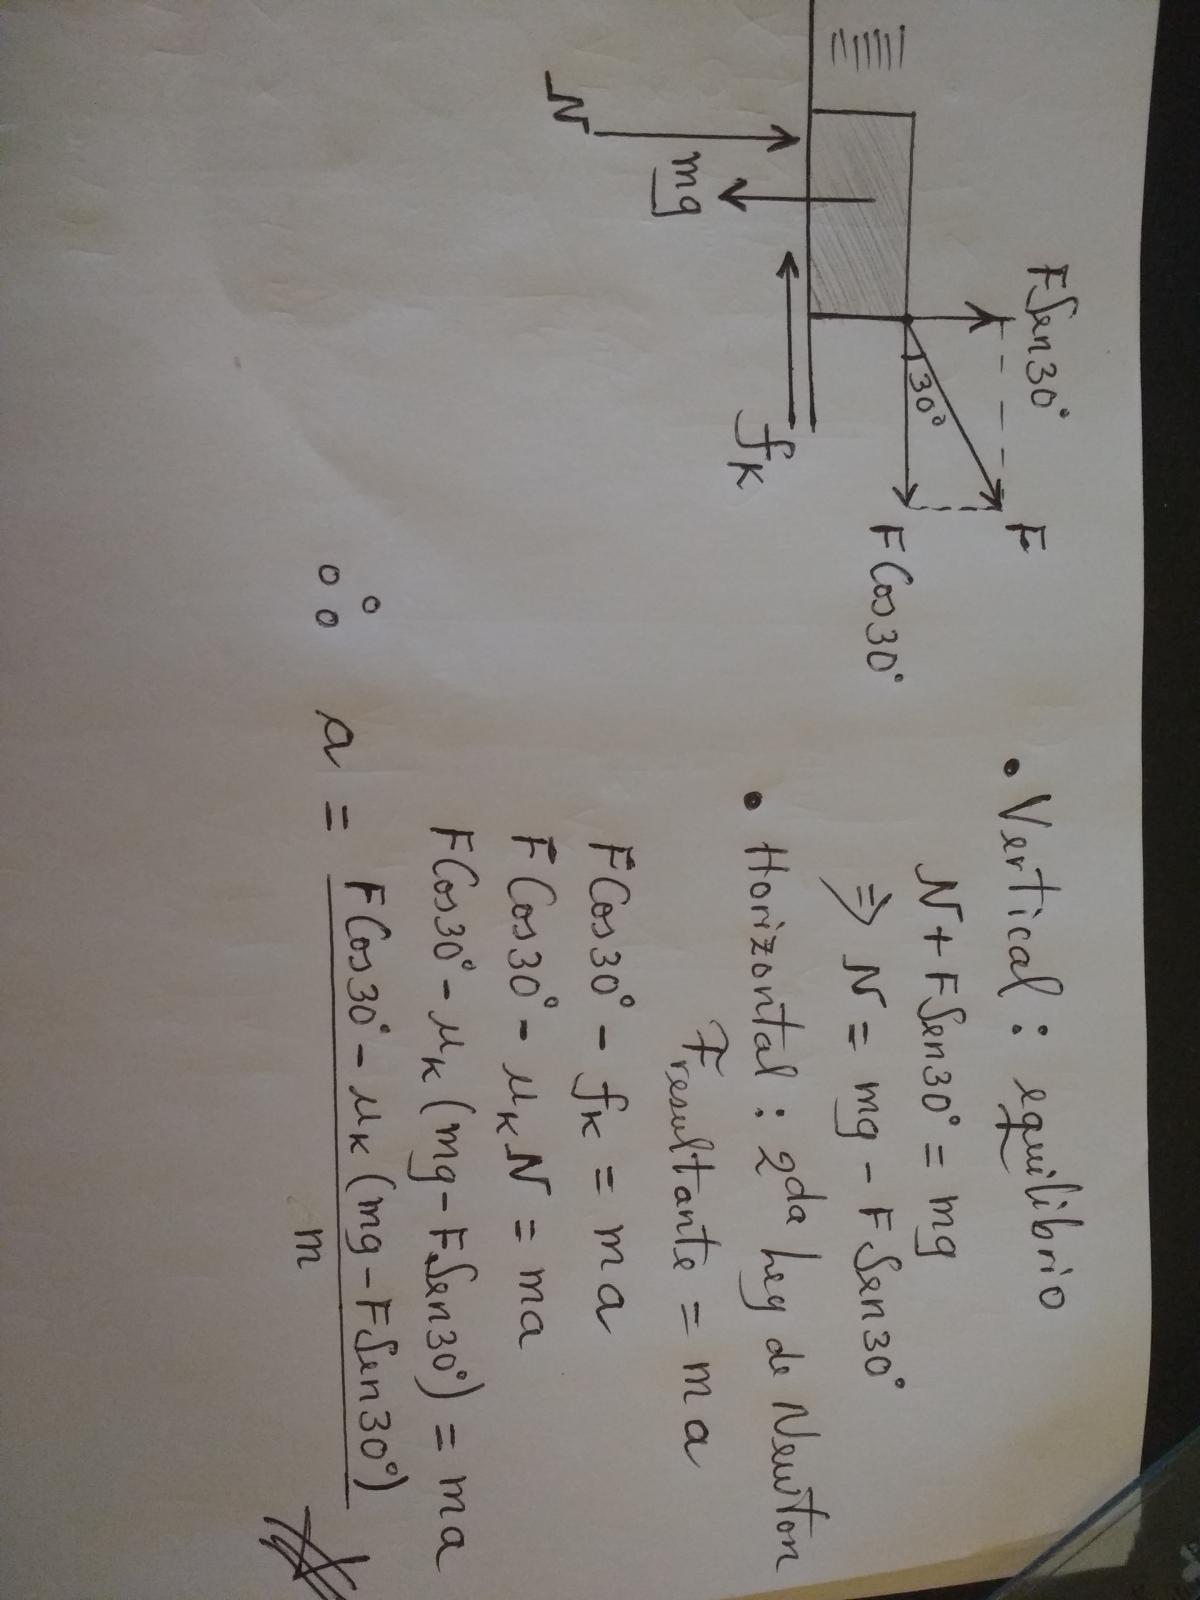 FSen30°
F
30°
FCos30°
N
mg
fₖ
• Vertical : equilibrio
N + FSen30° = mg
⇒ N = mg - FSen30°
• Horizontal : 2da Ley de Newton
Fresultante = ma
FCos30° - fₖ = ma
FCos30° - μₖN = ma
FCos30° - μₖ(mg - FSen30°) = ma
∴ a = FCos30° - μₖ(mg - FSen30°)
m